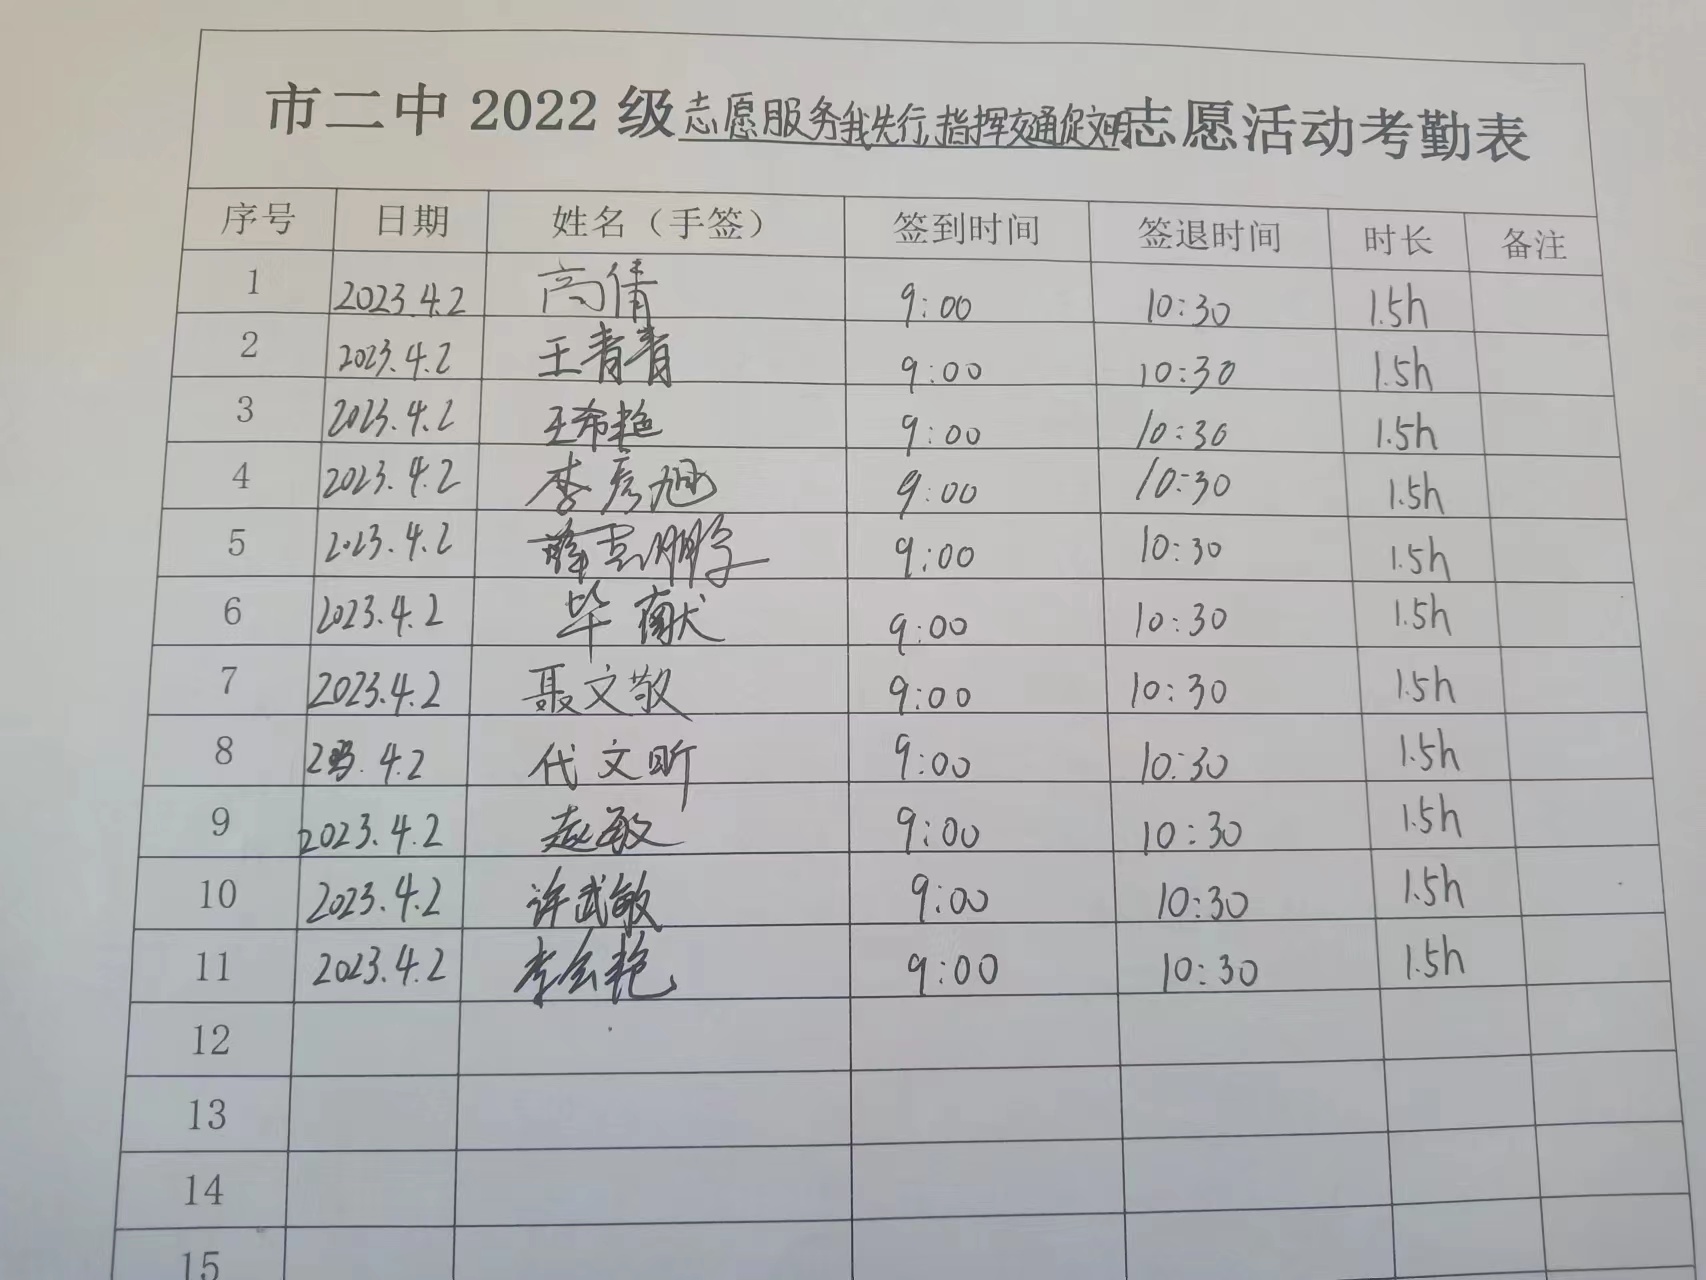 市二中 2022 级志愿服务我先行,指挥交通促文明志愿活动考勤表
序号 日期 姓名（手签） 签到时间 签退时间 时长 备注
1 2023.4.2 高倩 9:00 10:30 1.5h
2 2023.4.2 王青青 9:00 10:30 1.5h
3 2023.4.2 王希艳 9:00 10:30 1.5h
4 2023.4.2 李彦旭 9:00 10:30 1.5h
5 2023.4.2 9:00 10:30 1.5h
6 2023.4.2 毕献 9:00 10:30 1.5h
7 2023.4.2 聂文敬 9:00 10:30 1.5h
8 4.2 代文昕 9:00 10:30 1.5h
9 2023.4.2 赵敏 9:00 10:30 1.5h
10 2023.4.2 许武敏 9:00 10:30 1.5h
11 2023.4.2 李会艳 9:00 10:30 1.5h
12
13
14
15